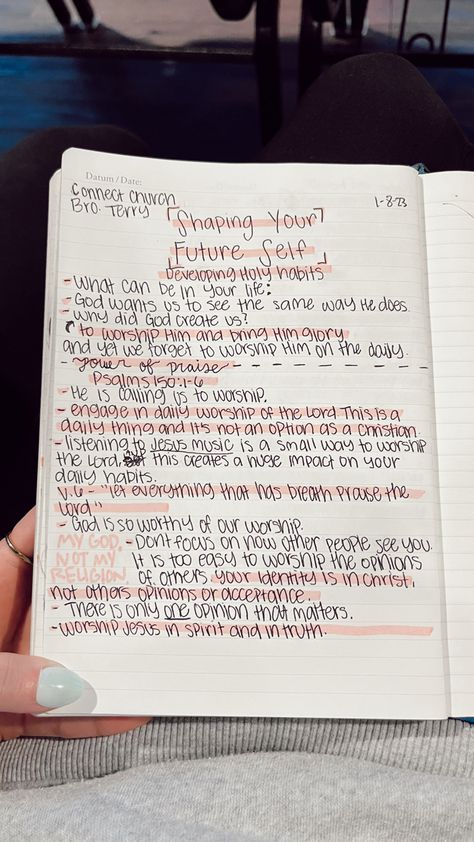 Datum/Date:
Connect Church
1-8-23
Bro. Terry
Shaping Your
Future Self
Developing Holy habits
- What can be in your life:
- God wants us to see the same way He does.
- Why did God create us?
to worship Him and bring Him glory
and yet we forget to worship Him on the daily.
- power of praise -
Psalms 150:1-6
- He is calling us to worship.
- engage in daily worship of the Lord. This is a
daily thing and it's not an option as a christian.
- listening to Jesus music is a small way to worship
the Lord. this creates a huge impact on your
daily habits.
v.6 - "let everything that has breath praise the
Lord"
- God is so worthy of our worship.
MY GOD.
NOT MY
RELIGION.
- Don't focus on how other people see you.
It is too easy to worship the opinions
of others. Your identity is in Christ,
not others opinions or acceptance.
- There is only one opinion that matters.
- Worship Jesus in spirit and in truth.